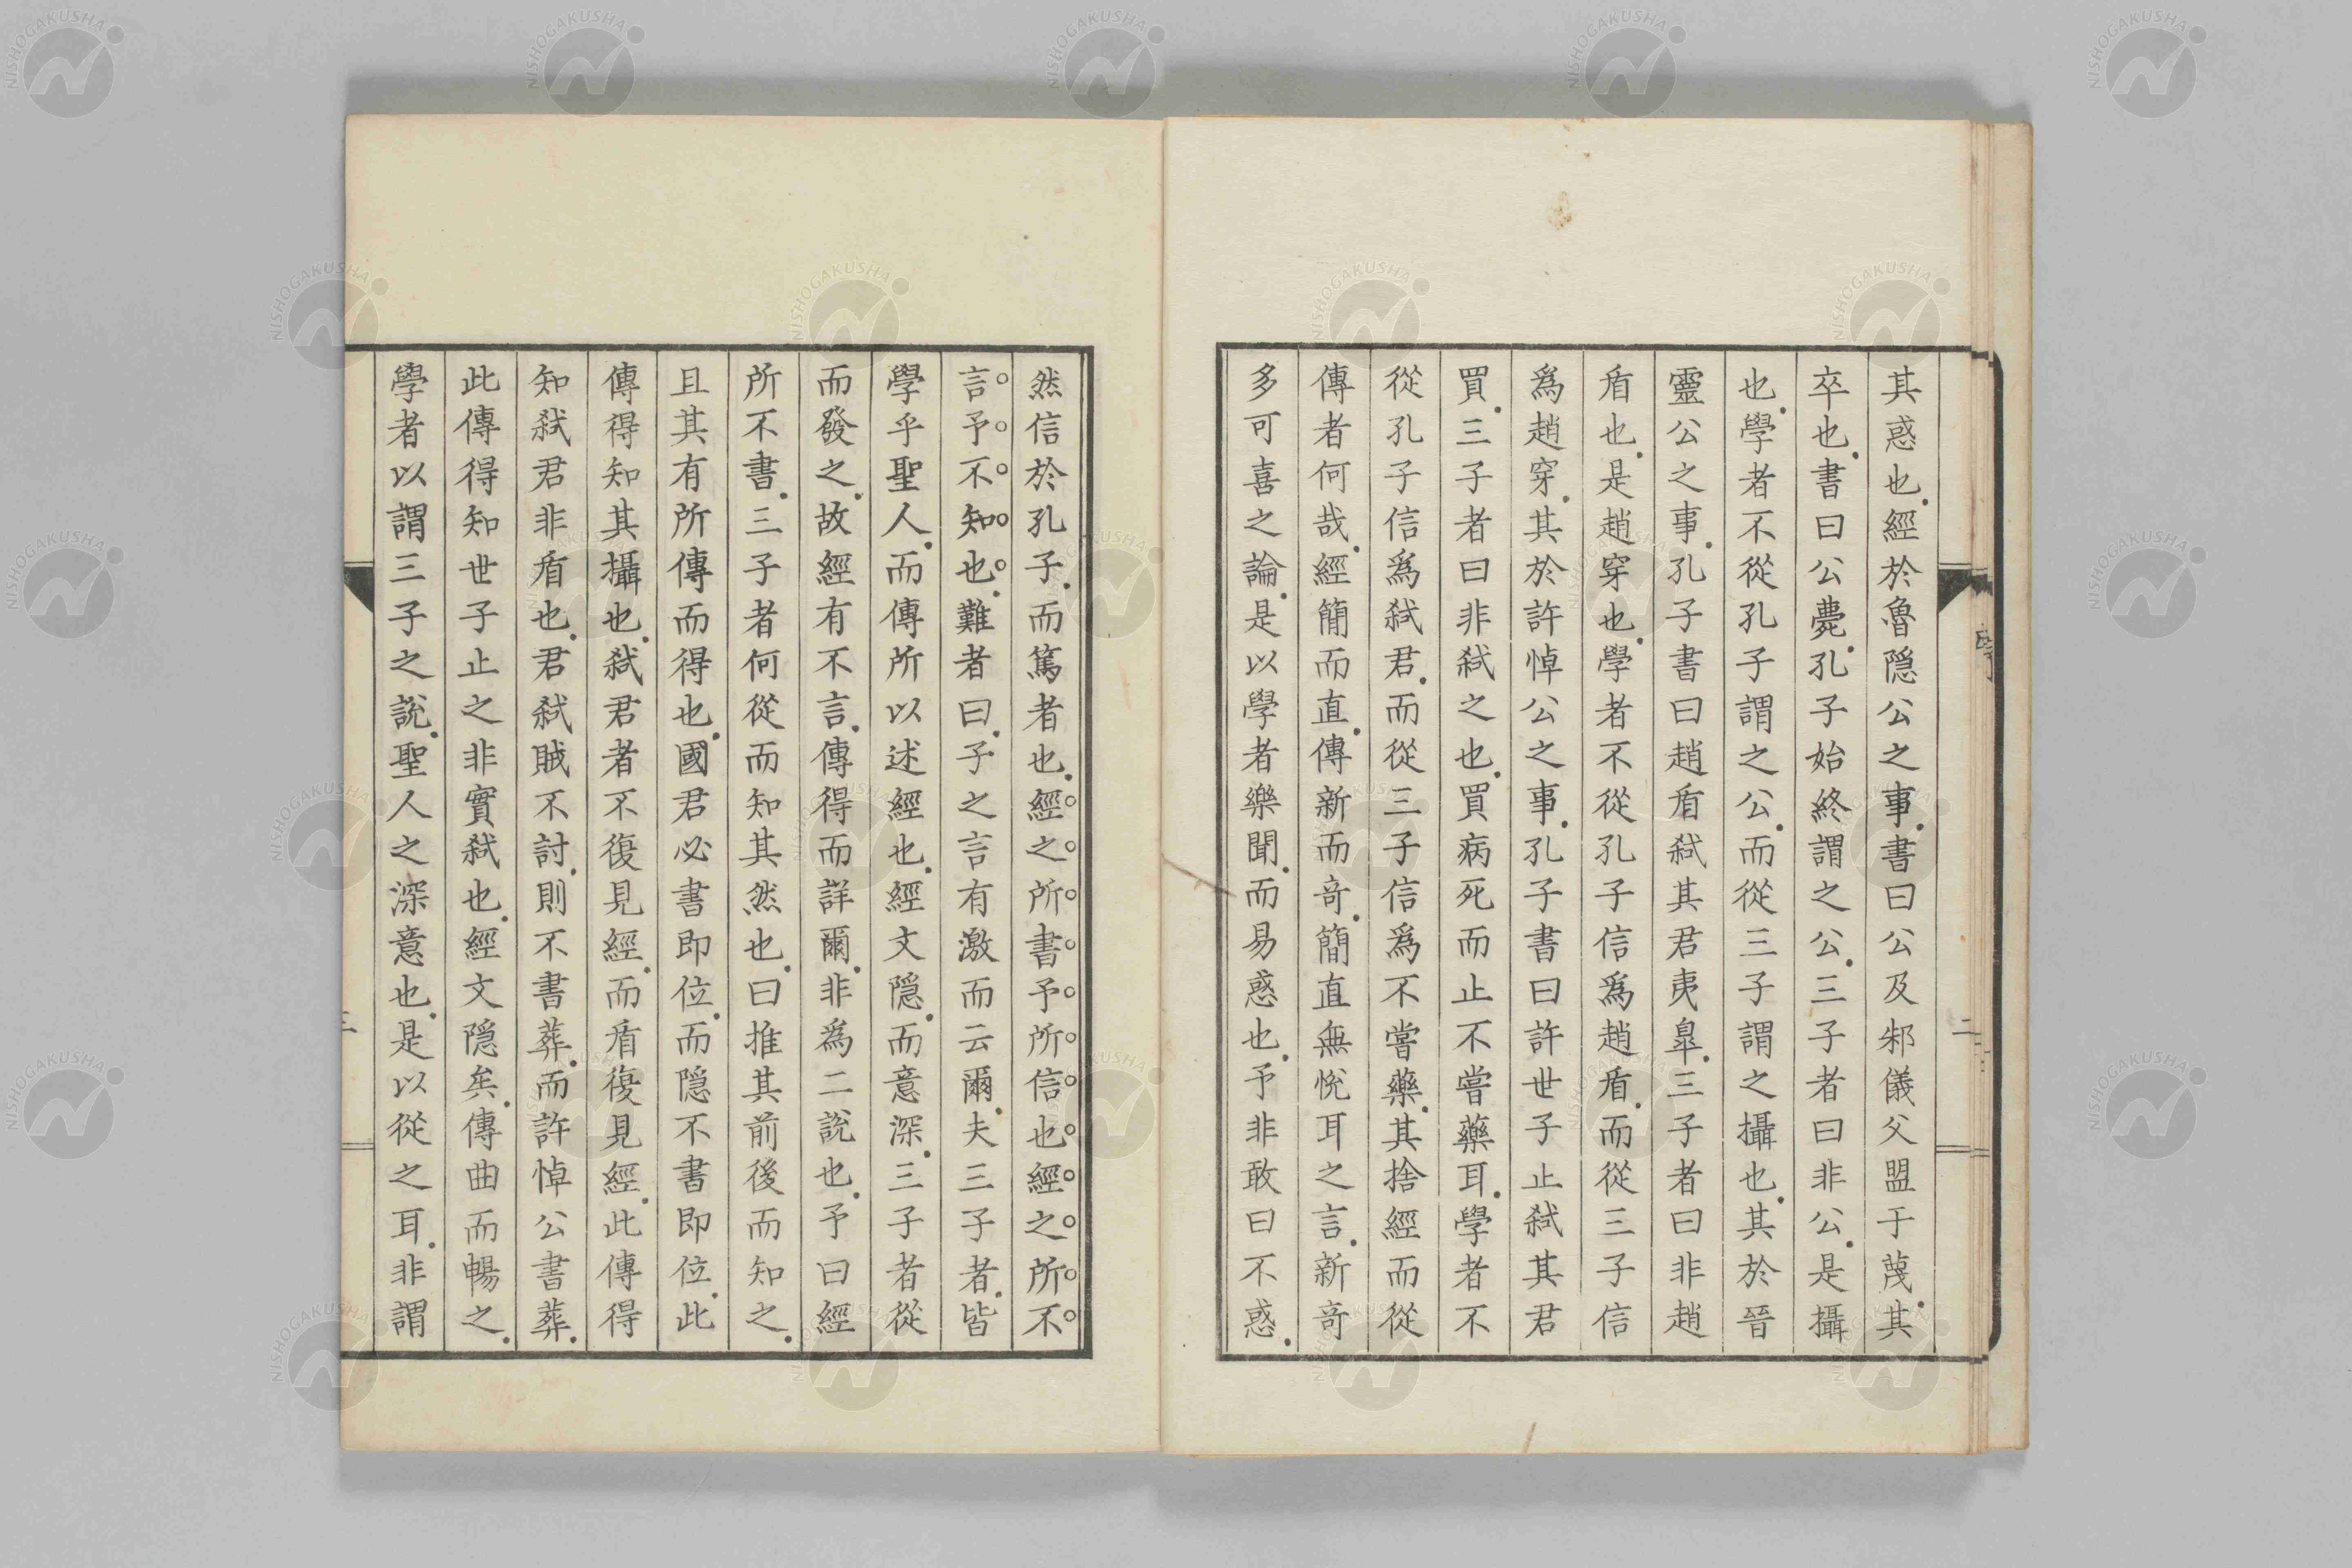 其惑也.經於魯隱公之事.書曰公及邾儀父盟于蔑.其
卒也.書曰公薨.孔子始終謂之公.三子者曰非公.是攝
也.學者不從孔子謂之公.而從三子謂之攝也.其於晉
靈公之事.孔子書曰趙盾弑其君夷臯.三子者曰非趙
盾也.是趙穿也.學者不從孔子信爲趙盾.而從三子信
爲趙穿.其於許悼公之事.孔子書曰許世子止弑其君
買.三子者曰非弑之也.買病死而止不嘗藥耳.學者不
從孔子信爲弑君.而從三子信爲不嘗藥.其捨經而從
傳者何哉.經簡而直.傳新而奇.簡直無悅耳之言.新奇
多可喜之論.是以學者樂聞.而易惑也.予非敢曰不惑.
二
然信於孔子.而篤者也.經之所書予所信也經之所不
言予不知也.難者曰.子之言有激而云爾.夫三子者.皆
學乎聖人.而傳所以述經也.經文隱.而意深.三子者從
而發之.故經有不言.傳得而詳爾.非爲二說也.予曰經
所不書.三子者何從而知其然也.曰推其前後而知之.
且其有所傳而得也.國君必書即位.而隱不書即位.此
傳得知其攝也.弑君者不復見經.而盾復見經.此傳得
知弑君非盾也.君弑賊不討.則不書葬.而許悼公書葬.
此傳得知世子止之非實弑也.經文隱矣.傳曲而暢之.
學者以謂三子之說.聖人之深意也.是以從之耳.非謂
三
NISHOGAKUSHA